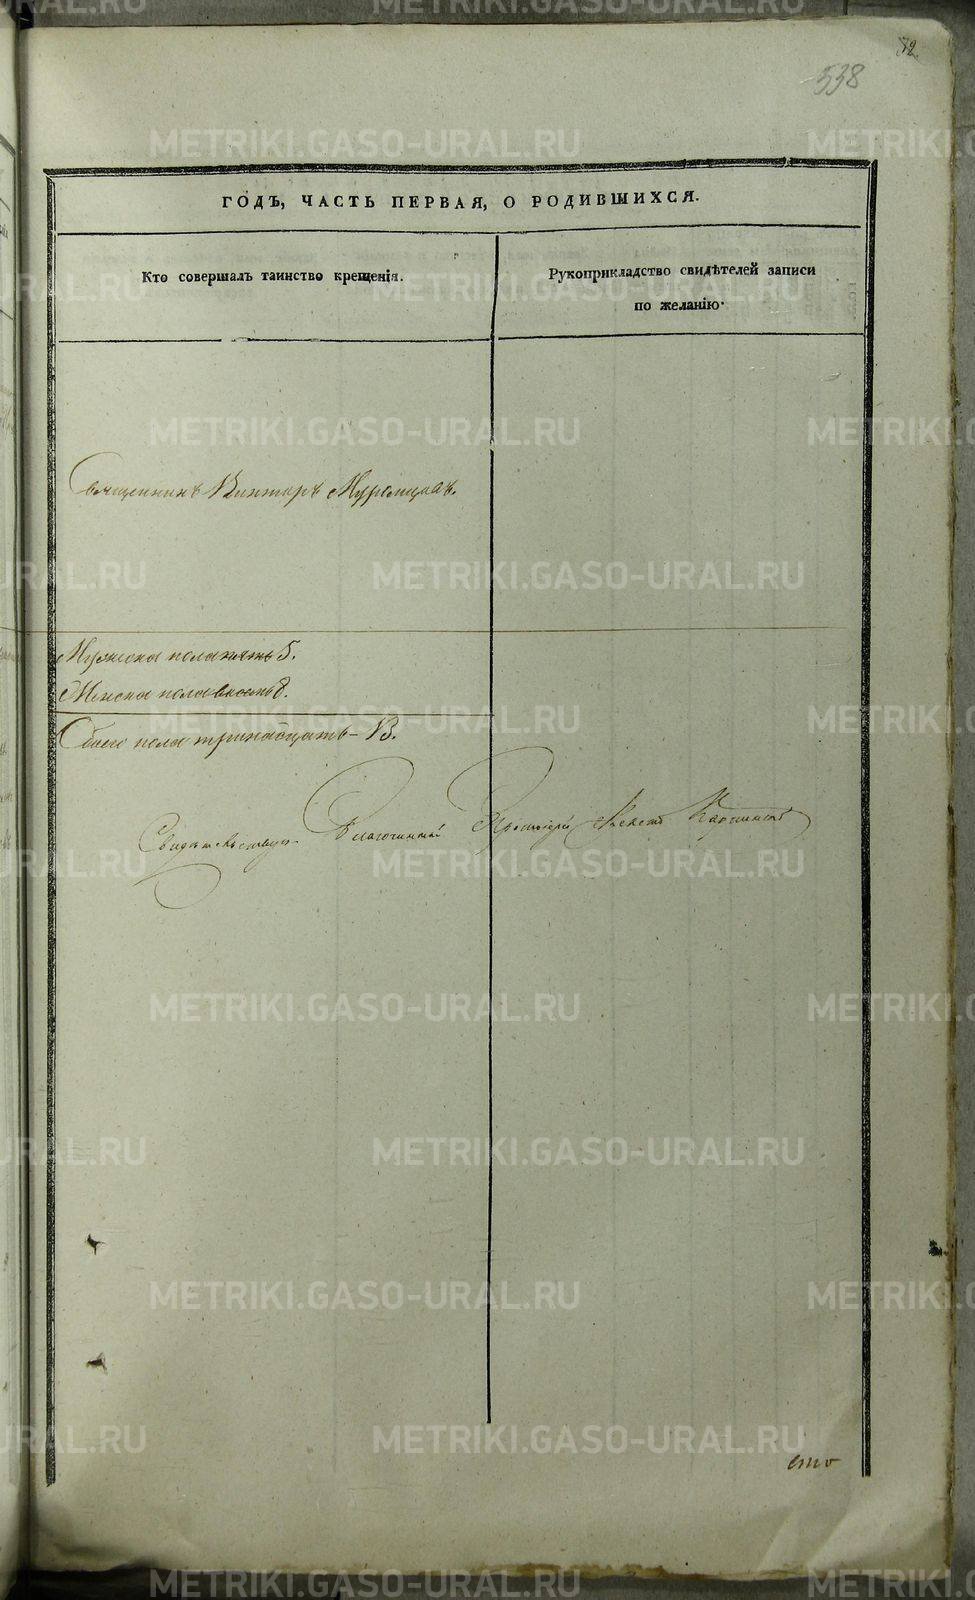 538
ГОДЪ, ЧАСТЬ ПЕРВАЯ, О РОДИВШИХСЯ.
Кто совершалъ таинство крещенія.
Рукоприкладство свидѣтелей записи
по желанію·
Священникъ Викторъ Муромцовъ.
Мужеска пола пять 5.
Женска пола восемь 8.
Обоего пола тринадцать – 13.
Благочинный Протоіерей
METRIKI.GASO-URAL.RU